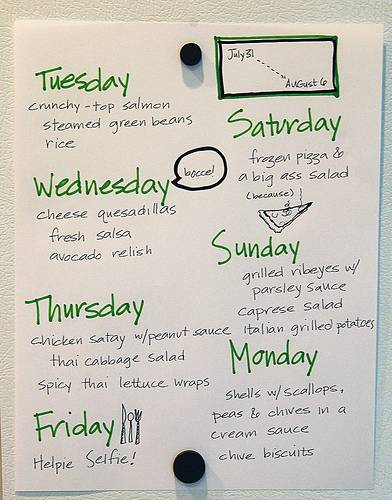 July 31
August 6
Tuesday
crunchy-top salmon
steamed green beans
rice
Wednesday
bocce!
cheese quesadillas
fresh salsa
avocado relish
Thursday
chicken satay w/peanut sauce
thai cabbage salad
spicy thai lettuce wraps
Friday
Helpie Selfie!
Saturday
frozen pizza &
a big ass salad
(because)
Sunday
grilled ribeyes w/
parsley sauce
caprese salad
italian grilled potatoes
Monday
shells w/scallops,
peas & chives in a
cream sauce
chive biscuits